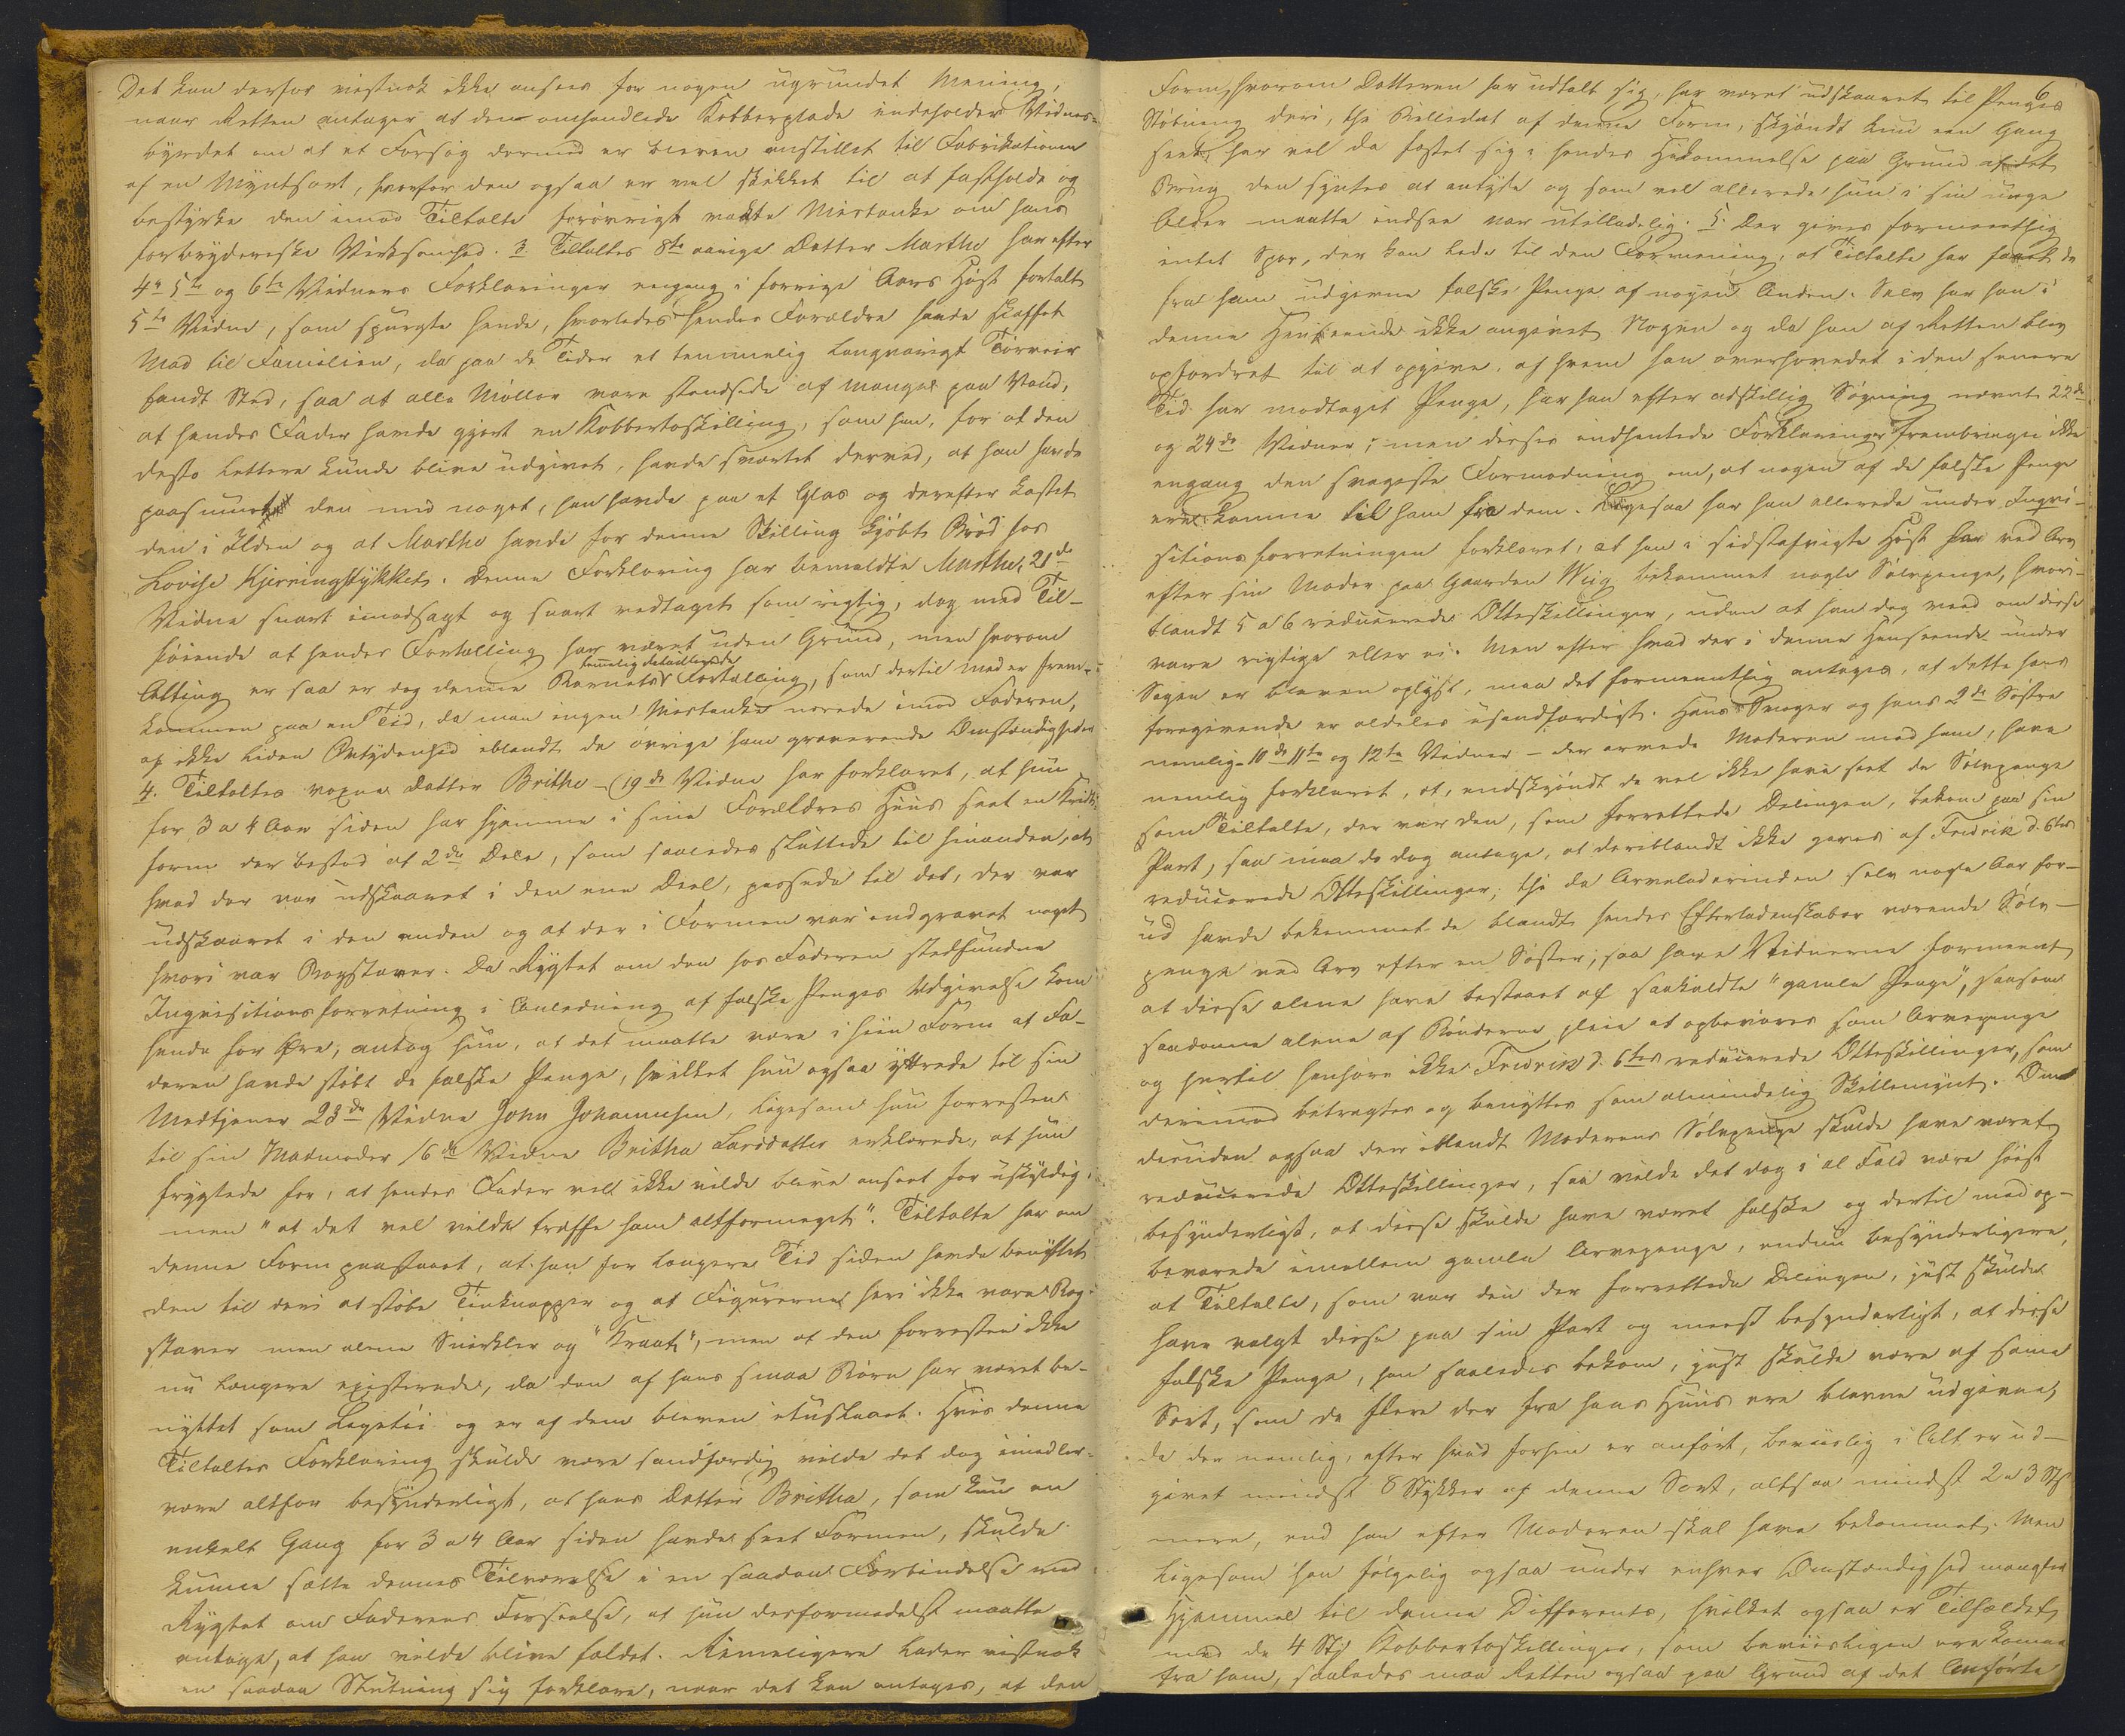 Det kan derfor vistnok ikke ansees for nogen ugrundet Mening,
naar Retten antager at den omhandlede Kobberplade indeholder Vidnes-
byrdet om at et Forsøg dermed er bleven anstillet til Fabrikationen
af en Myntsort, hvorfor den ogsaa er vel skikket til at fastholde og
bestyrke den imod Tiltalte forøvrigt vakte Mistanke om hans
forbryderske Virksomhed. 3. Tiltaltes 8te aarige Datter Marthe har efter
4de 5te og 6te Vidners Forklaringer engang i forrige Aars Høst fortalt
5te Vidne, som spurgte hende, hvorledes hendes Forældre havde skaffet
Mad til Familien, da paa de Tider et temmelig langvarigt Tørveir
fandt Sted, saa at alle Møller vare standsede af Mangel paa Vand,
at hendes Fader havde gjort en Kobbertoskilling, som han, for at den
desto lettere kunde blive udgivet, havde sværtet derved, at han havde
paasmurt den med noget, han havde paa et Glas og derefter kastet
den i Ilden og at Marthe havde for denne Skilling kjøbt Brød hos
Lovise Kjerringstykket. Denne Forklaring har bemeldte Marthe, 21de
Vidne snart imodsagt og snart vedtaget som rigtig, dog med Til-
føiende at hendes Fortælling har været uden Grund, men hvorom
Alting er saa er dog denne Barnets temelig detaillerede Fortælling, som dertil med er frem-
kommen paa en Tid, da man ingen Mistanke nærede imod Faderen,
af ikke liden Betydenhed iblandt de øvrige ham graverende Omstændigheder
4. Tiltaltes voxne Datter Brithe – (19de Vidne har forklaret, at hun
for 3 a 4 Aar siden har hjemme i sine Forældres Huus seet en
form der bestod af 2de Dele, som saaledes sluttede til hinanden, at
hvad der var udskaaret i den ene Deel, passede til det, der var
udskaaret i den anden og at der i Formen var indgravet noget
hvori var Bogstaver. Da Rygtet om den hos Faderen stedfundne
Inqvisitionsforretning i Anledning af falske Penges Udgivelse kom
hende for Øre, antog hun, at det maatte være i hiin Form at Fa-
deren havde støbt de falske Penge, hvilket hun ogsaa yttrede til sin
Medtjener 23de Vidne John Johannesen, ligesom hun forresten
til sin Madmoder 16de Vidne Britha Larsdatter erklærede, at hun
frygtede for, at hendes Fader vel ikke vilde blive anseet for uskyldig,
men "at det vel vilde træffe ham altformeget". Tiltalte har om
denne Form paastaaet, at han for længere Tid siden havde benyttet
den til deri at støbe Tinknapper og at Figurerne heri ikke vare Bog-
staver men alene Snirkler og "Kraat", men at den forresten ikke
nu længere existerede, da den af hans smaa Børn har været be-
nyttet som Legetøi og er af dem bleven ituslaaet. Hvis denne
Tiltaltes Forklaring skulde være sandfærdig vilde det dog imidler-
være altfor besynderligt, at hans Datter Britha, som kun en
enkelt Gang for 3 a 4 Aar siden havde seet Formen, skulde
kunne sætte dennes Tilværelse i en saadan Forbindelse med
Rygtet om Faderens Forseelse, at hun derformedelst maatte
antage, at han vilde blive fældet. Rimeligere lader vistnok
en saadan Slutning sig forklare, naar det kan antages, at den
6
Form, hvorom Datteren har udtalt sig, har været udskaaret til Penges
Støbning deri, thi Billedet af denne Form, skjøndt kun een Gang
seet, har vel da fæstet sig i hendes Hukommelse paa Grund af det
Brug den syntes at antyde og som vel allerede hun i sin unge
Alder maatte indsee var utilladelig. 5. Der gives formeentlig
intet Spor, der kan lede til den Formening, at Tiltalte har faaet de
fra ham udgivne falske Penge af nogen Anden. Selv har han i
denne Henseende ikke angivet Nogen og da han af Retten blev
opfordret til at opgive, af hvem han overhovedet i den senere
Tid har modtaget Penge, har han efter adskillig Søgning nævnt 22de
og 24de Vidner; men disses indhentede Forklaringer frembringe ikke
engang den svageste Formodning om, at nogen af de falske Penge
ere komne til ham fra dem. Ligesaa har han allerede under Inqvi-
sitionsforretningen forklaret, at han i sidstafvigte Høst har ved Arv
efter sin Moder paa Gaarden Wiig bekommet nogle Sølvpenge, hvori-
blandt 5 a 6 reducerede Otteskillinger, uden at han dog veed om disse
vare rigtige eller ei. Men efter hvad der i denne Henseende under
Sagen er bleven oplyst, maa det formeentlig antages, at dette hans
foregivende er aldeles usandfærdigt. Hans Svoger og hans 2de Søstre
nemlig 10de 11te og 12te Vidner – der arvede Moderen med ham, have
nemlig forklaret, at, endskjøndt de vel ikke have seet de Sølvpenge
som Tiltalte, der var den, som forrettede Delingen, bekom paa sin
Part, saa maa de dog antage, at deriblandt ikke gaves af Fredrik d. 6tes
reducerede Otteskillinger; thi da Arveladerinden selv nogle Aar for-
ud havde bekommet de blandt hendes Efterladenskaber værende Sølv-
penge ved Arv efter en Søster, saa have Vidnerne formeent
at disse alene have bestaaet af saakaldte "gamle Penge", saasom
saadanne alene af Bønderne pleie at opbevares som Arvepenge
og hertil henhøre ikke Fredrik d. 6tes reducerede Otteskillinger, som
derimod betragtes og benyttes som almindelig Skillemynt. Om
desuden ogsaa der iblandt Moderens Sølvpenge skulde have været
reducerede Otteskillinger, saa vilde det dog i al Fald være høist
besynderligt, at disse skulde have været falske og dertil med op-
bevarede imellem gamle Arvepenge, endnu besynderligere,
at Tiltalte, som var den der forrettede Delingen, just skulde
have valgt disse paa sin Part og meest besynderligt, at disse
falske Penge, han saaledes bekom, just skulde være af samme
Sort, som de flere der fra hans Huus ere blevne udgivne,
da der nemlig, efter hvad forhen er anført, beviislig i Alt er ud-
givet mindst 8 Stykker af denne Sort, altsaa mindst 2 a 3 Stk
mere, end han efter Moderen skal have bekommet. Men
ligesom han følgelig ogsaa under enhver Omstændighed mangler
Hjemmel til denne Differents, hvilket ogsaa er Tilfældet
med de 4 Stk Kobbertoskillinger, som beviisligen ere komne
fra ham, saaledes maa Retten ogsaa paa Grund af det Anførte